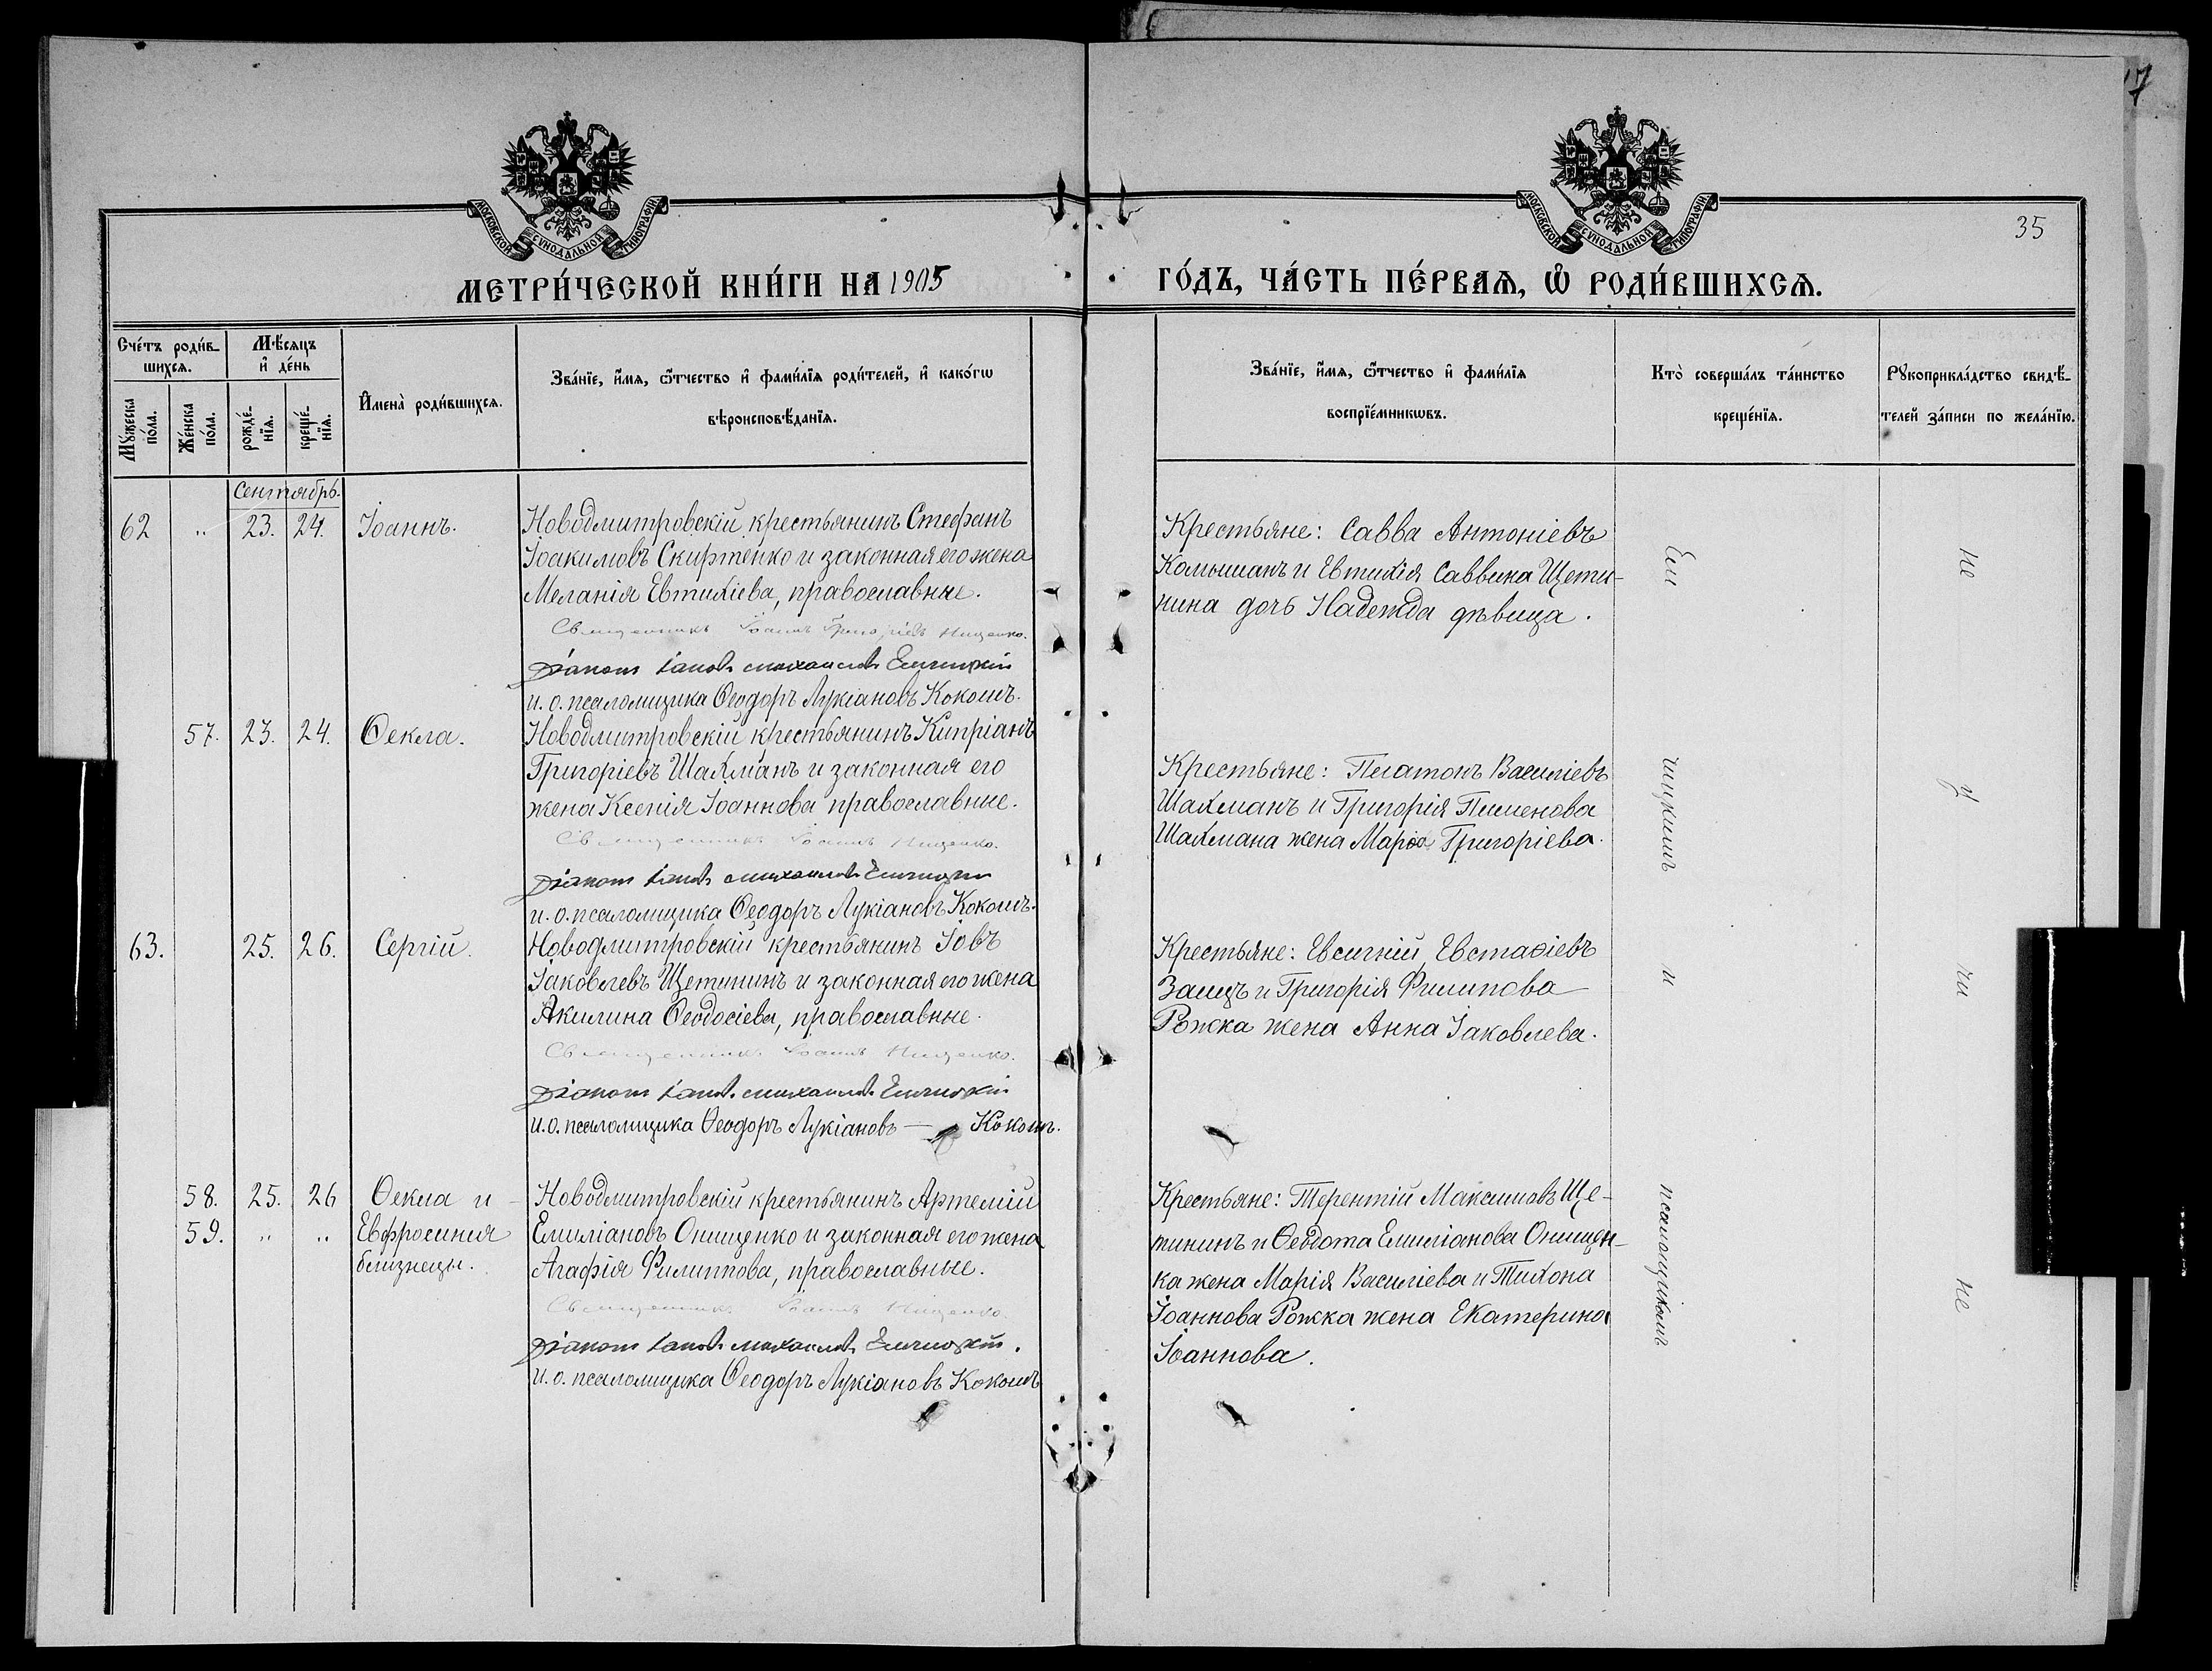 17
МОСКОВСКОЙ СУНОДАЛЬНОЙ ТИПОГРАФІИ
МОСКОВСКОЙ СУНОДАЛЬНОЙ ТИПОГРАФІИ
35
МЕТРИ́ЧЕСКОЙ КНИ́ГИ НА 1905 ГО́ДЪ, ЧА́СТЬ ПЕ́РВАѦ, Ѡ҆ РОДИ́ВШИХСѦ.
Сче́тъ роди́в-
шихсѧ.
Мѣ́сѧцъ
и҆ де́нь
Мꙋ́жеска по́ла.
Же́нска по́ла.
рожде́-
нїѧ.
креще́-
нїѧ.
И҆мена̀ роди́вшихсѧ.
Зва́нїе, и҆́мѧ, ѻ҆́тчество и҆ фами́лїѧ роди́телей, и҆ како́гѡ
вѣроисповѣ́данїѧ.
Зва́нїе, и҆́мѧ, ѻ҆́тчество и҆ фами́лїѧ
воспрїе́мникѡвъ.
Кто̀ соверша́лъ та́инство
креще́нїѧ.
Рꙋкоприкла́дство свидѣ́-
телей за́писи по жела́нїю.
Сентябрь.
62 „ 23. 24. Іоаннъ.
Новодмитровскій крестьянинъ Стефанъ
Іоакимовъ Скиртенко и законная его жена
Меланія Евтихіева, православные.
Священникъ Іоаннъ Григоріевъ Нищенко.
Діаконъ Іаковъ Михаиловъ
и. о. псаломщика Ѳеодоръ Лукіановъ Кокошъ.
Крестьяне: Савва Антоніевъ
Комышанъ и Евтихія Саввина Щети-
нина дочь Надежда дѣвица.
57. 23. 24. Ѳекла.
Новодмитровскій крестьянинъ Кипріанъ
Григоріевъ Шахманъ и законная его
жена Ксенія Іоаннова православные.
Священникъ Іоаннъ Нищенко.
Діаконъ Іаковъ Михаиловъ
и. о. псаломщика Ѳеодоръ Лукіановъ Кокошъ.
Крестьяне: Платонъ Василіевъ
Шахманъ и Григорія Пименова
Шахмана жена Марія Григоріева.
63. 25. 26. Сергій.
Новодмитровскій крестьянинъ Іовъ
Іаковлевъ Щетининъ и законная его жена
Акилина Ѳеодосіева, православные.
Священникъ Іоаннъ Нищенко.
Діаконъ Іаковъ Михаиловъ
и. о. псаломщика Ѳеодоръ Лукіановъ — Кокошъ.
Крестьяне: Евсигній Евстаѳіевъ
Заецъ и Григорія Филипова
Рожка жена Анна Іаковлева.
58. 25. 26 Ѳекла и
59. „ „ Евфросинія
близнецы.
Новодмитровскій крестьянинъ Артемій
Емиліановъ Онищенко и законная его жена
Агафія Филиппова, православные.
Священникъ Іоаннъ Нищенко.
Діаконъ Іаковъ Михаиловъ
и. о. псаломщика Ѳеодоръ Лукіановъ Кокошъ
Крестьяне: Терентій Максимовъ Ще-
тининъ и Ѳеодота Емиліанова Онищен-
ка жена Марія Василіева и Тихона
Іоаннова Рожка жена Екатерина
Іоаннова.
и
псаломщикомъ
не